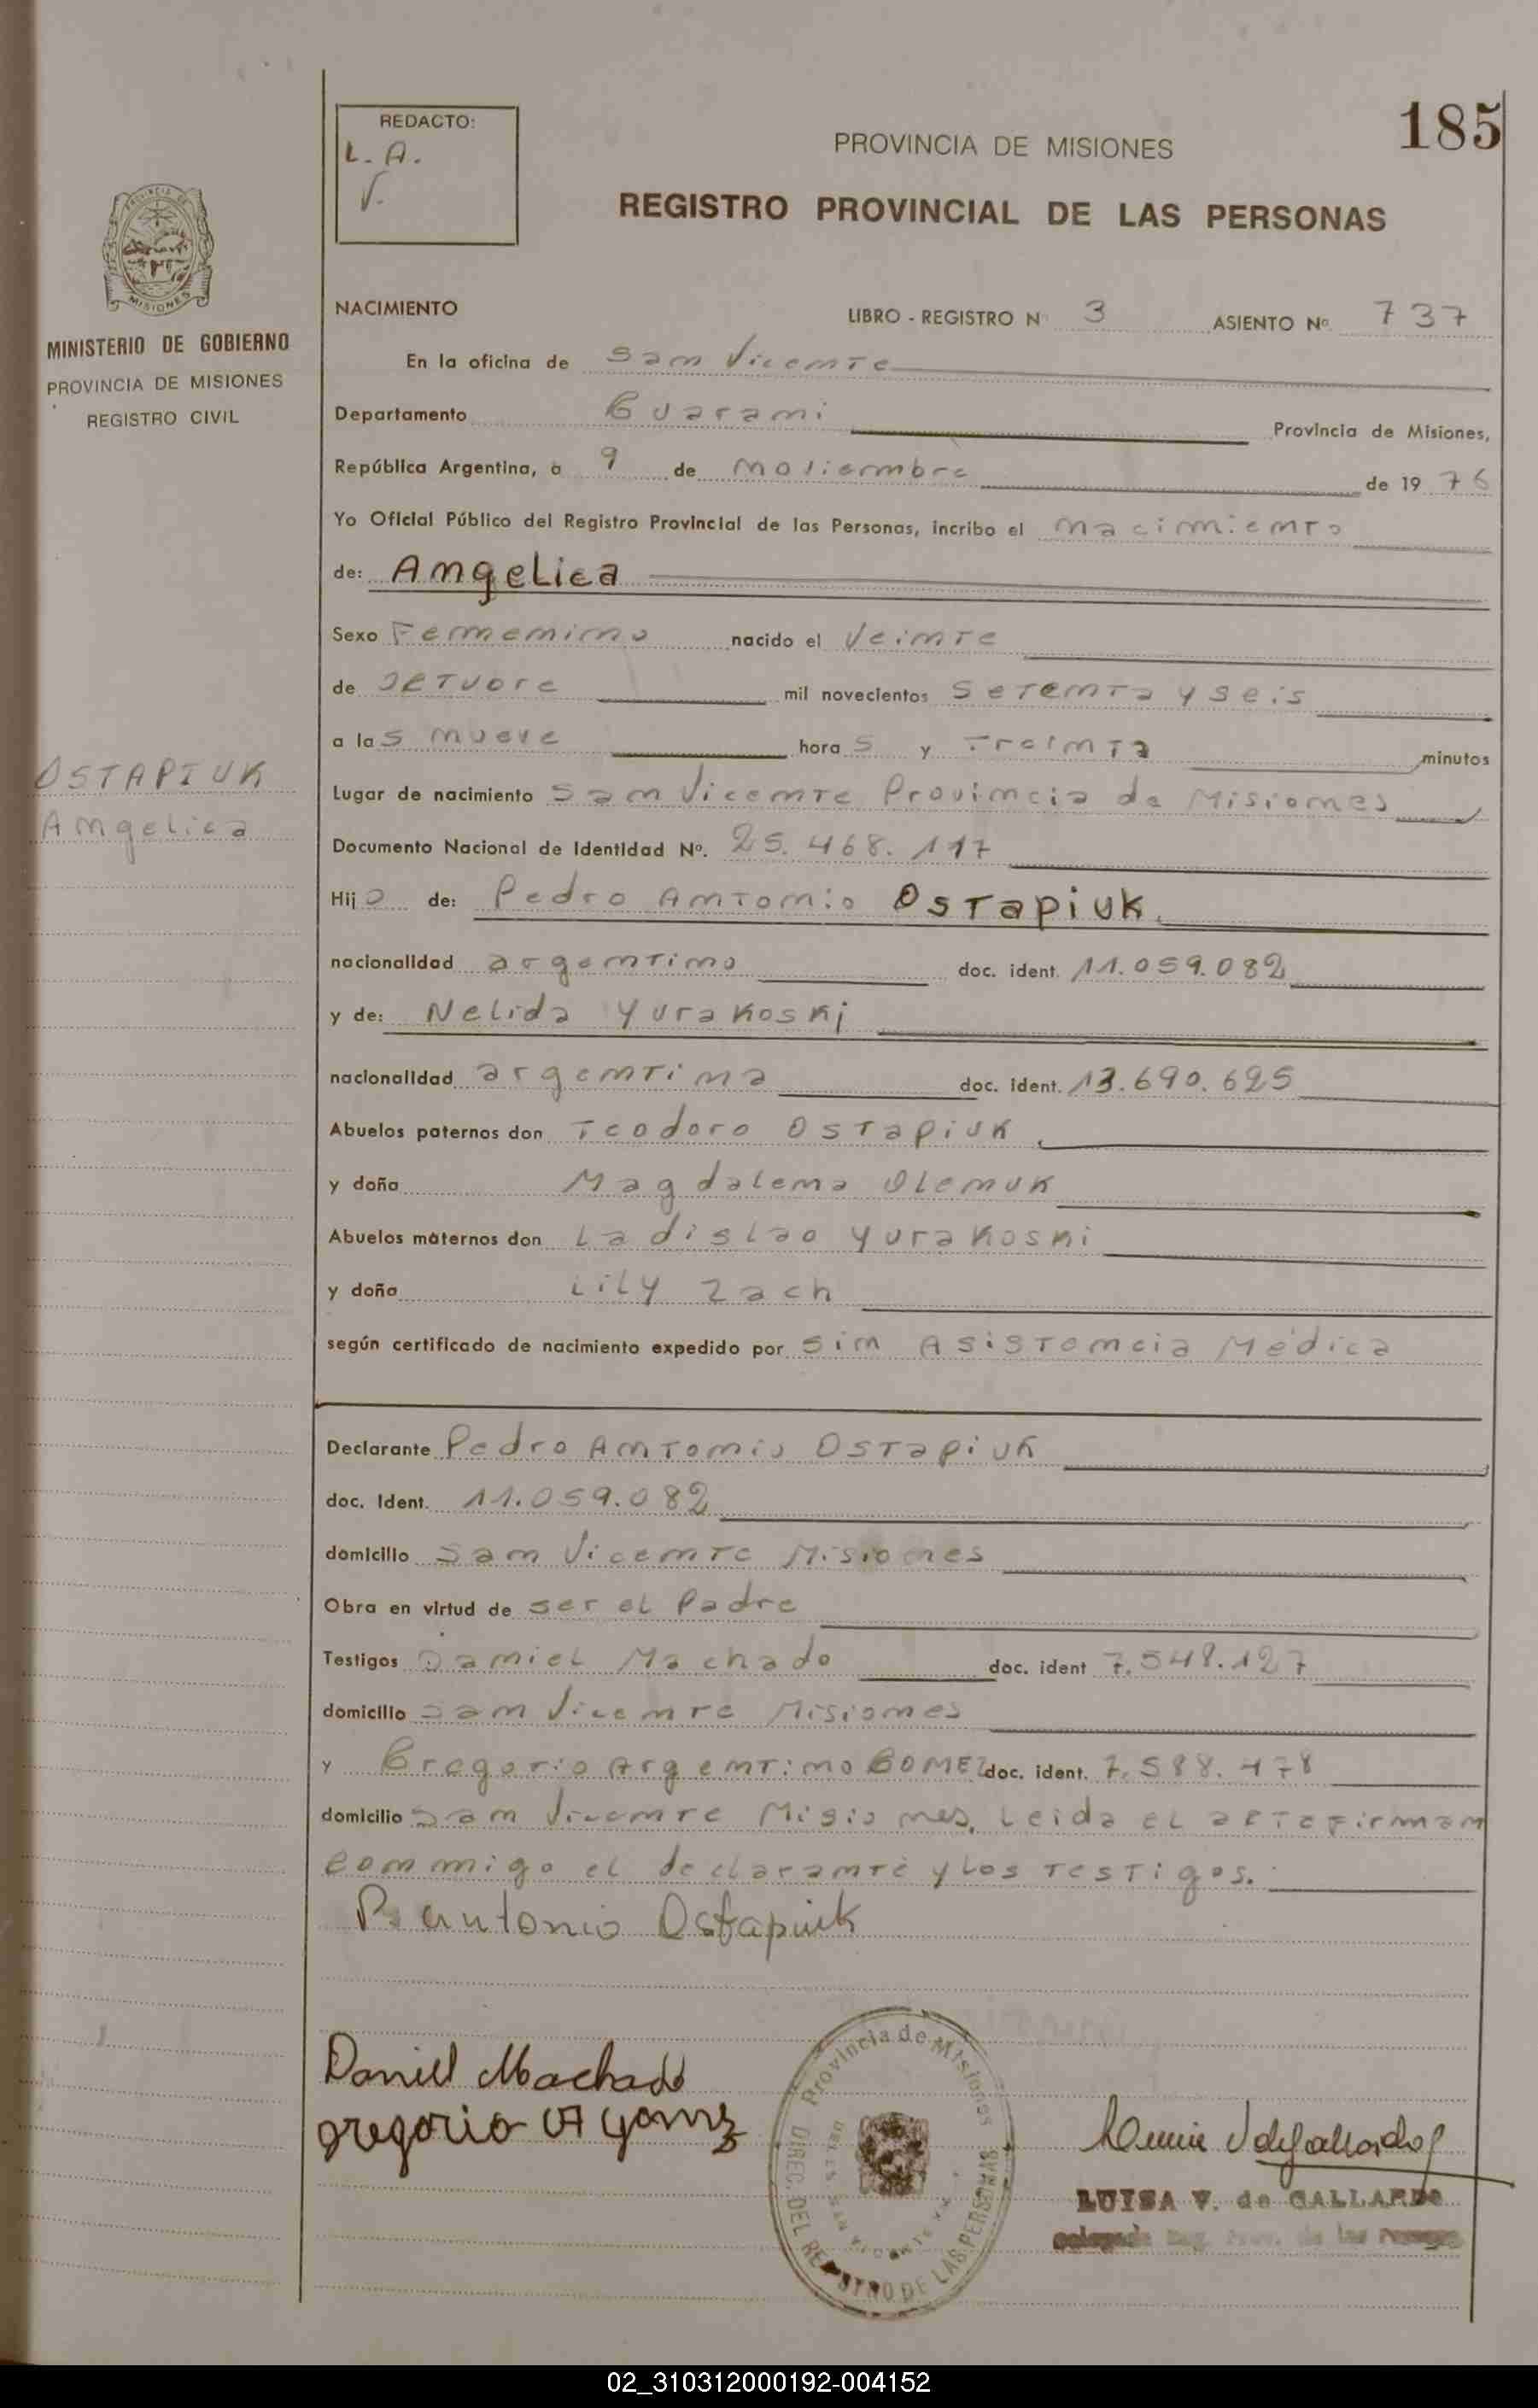 185
REDACTO:
L. A.
V.
PROVINCIA DE MISIONES
REGISTRO PROVINCIAL DE LAS PERSONAS
MISIONES
MINISTERIO DE GOBIERNO
PROVINCIA DE MISIONES
REGISTRO CIVIL
NACIMIENTO LIBRO - REGISTRO Nº 3 ASIENTO Nº 737
En la oficina de San Vicente
Departamento Guarani Provincia de Misiones,
República Argentina, a 9 de noviembre de 1976
Yo Oficial Público del Registro Provincial de las Personas, incribo el nacimiento
de: Angelica
Sexo Femenino nacido el Veinte
de octubre mil novecientos setenta y seis
a las nueve horas y Treinta minutos
OSTAPIUK
Angelica
Lugar de nacimiento San Vicente Provincia de Misiones
Documento Nacional de Identidad Nº. 25.468.117
Hijo de: Pedro Antonio Ostapiuk
nacionalidad argentino doc. ident. 11.059.082
y de: Nelida Yurakoski
nacionalidad argentina doc. ident. 13.690.625
Abuelos paternos don Teodoro Ostapiuk
y doña Magdalena Olenuk
Abuelos maternos don Ladislao Yurakoski
y doña Lily Zach
según certificado de nacimiento expedido por sin Asistencia Médica
Declarante Pedro Antonio Ostapiuk
doc. Ident. 11.059.082
domicilio San Vicente Misiones
Obra en virtud de ser el Padre
Testigos Daniel Machado doc. ident 7.548.127
domicilio San Vicente Misiones
y Gregorio Argentino GOMEZ doc. ident. 7.588.478
domicilio San Vicente Misiones. Leida el acta firman
conmigo el declarante y los testigos.
P. Antonio Ostapiuk
Daniel Machado
Gregorio A Gomez
Provincia de Misiones
DIREC. DEL REGISTRO DE LAS PERSONAS
LUISA V. de GALLARDO
Delegada Reg. Prov. de las Personas
02_310312000192-004152